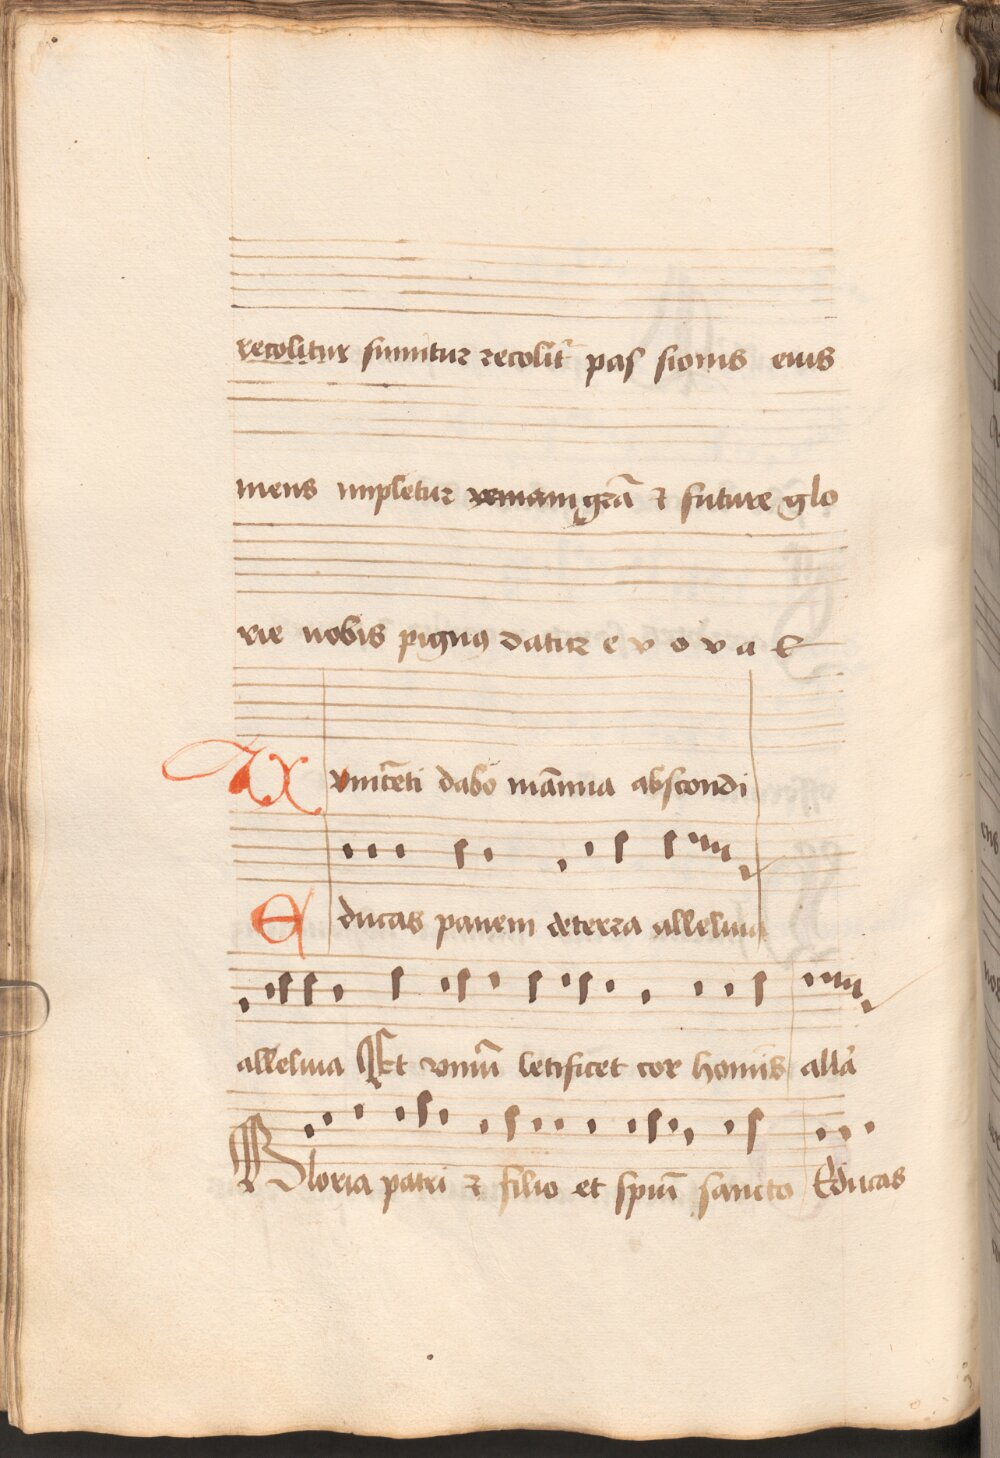 recolitur sumitur recolit᷑ pas sionis eius
mens impletur veniam grā ⁊ future glo
rie nobis pignꝰ datur e v o v a e
vincēti dabo māna abscondi
Educas panem deterra alleluia
alleluia Et vinū letificet cor hominis all̄a
Gloria patri ⁊ filio et spūi sancto Educas